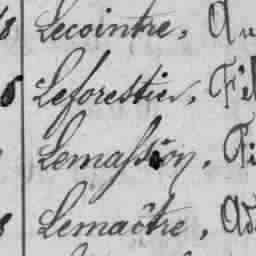 8 Lecointre, Au
5 Leforestier, Fél
Lemassón, Fi
8 Lemaître, Ad